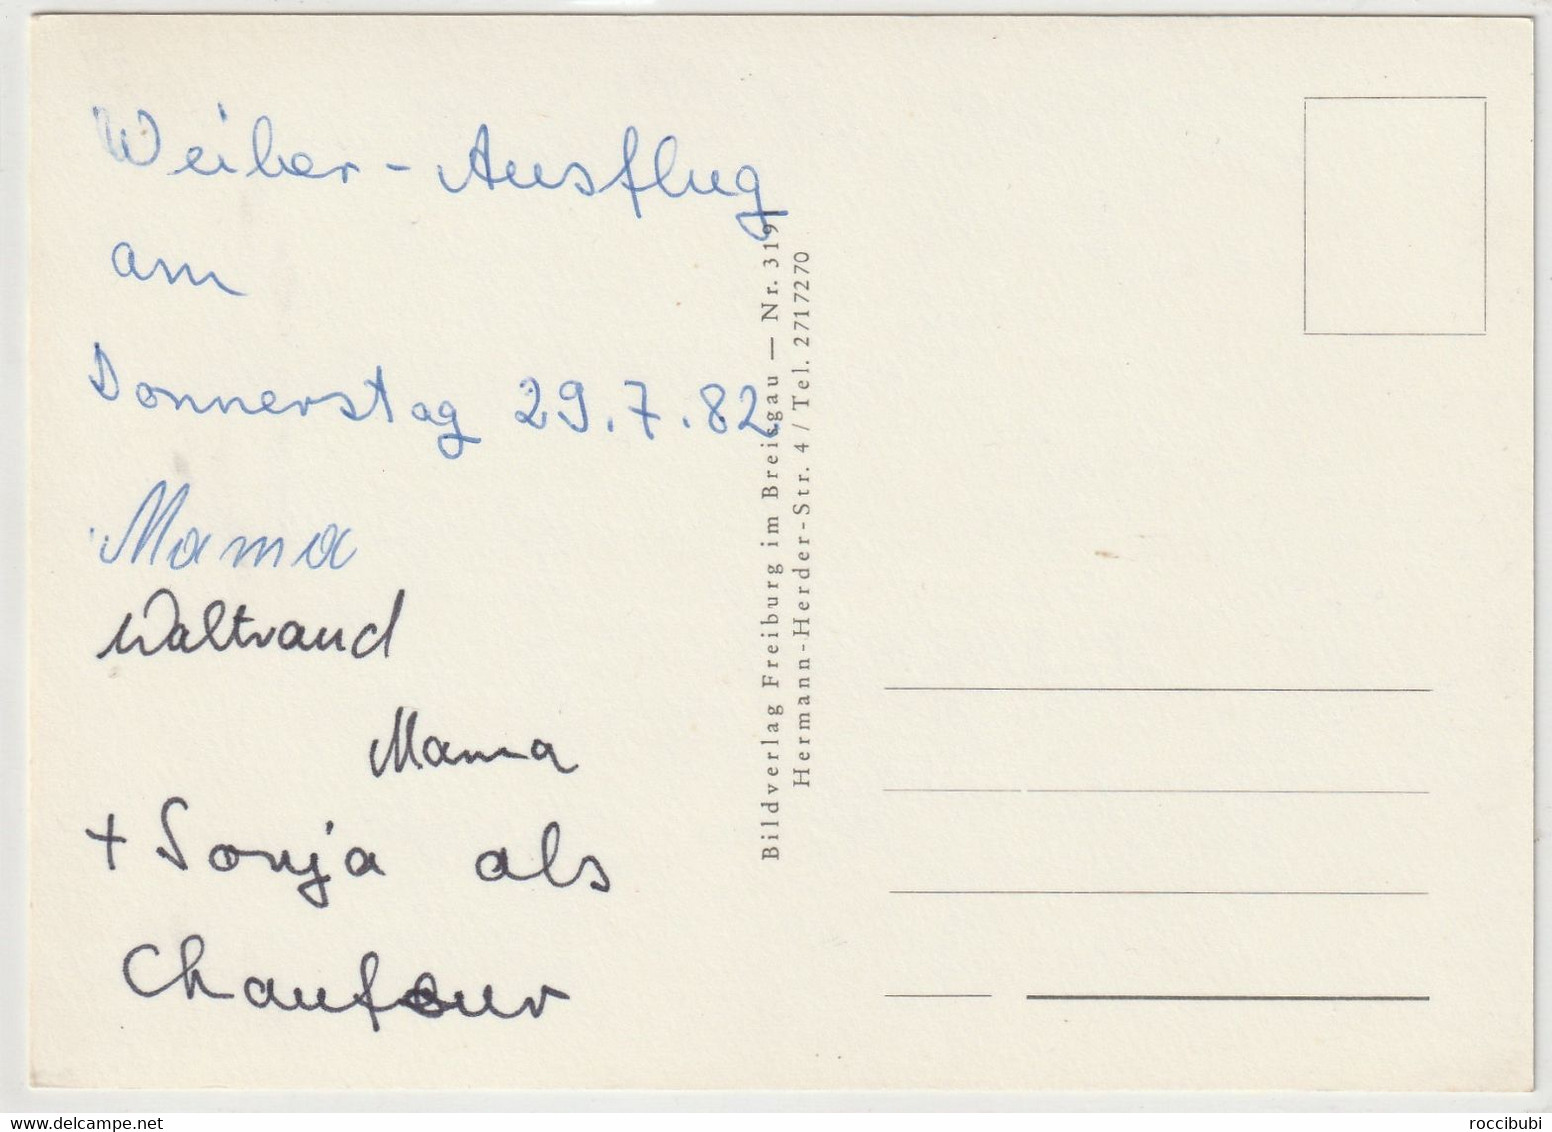 Weiber-Ausflug
am
Donnerstag 29.7.82
Mama
Waltraud
Mama
+ Sonja als
Chaufeur
Bildverlag Freiburg im Breisgau — Nr. 319
Hermann-Herder-Str. 4 / Tel. 2717270
roccibubi